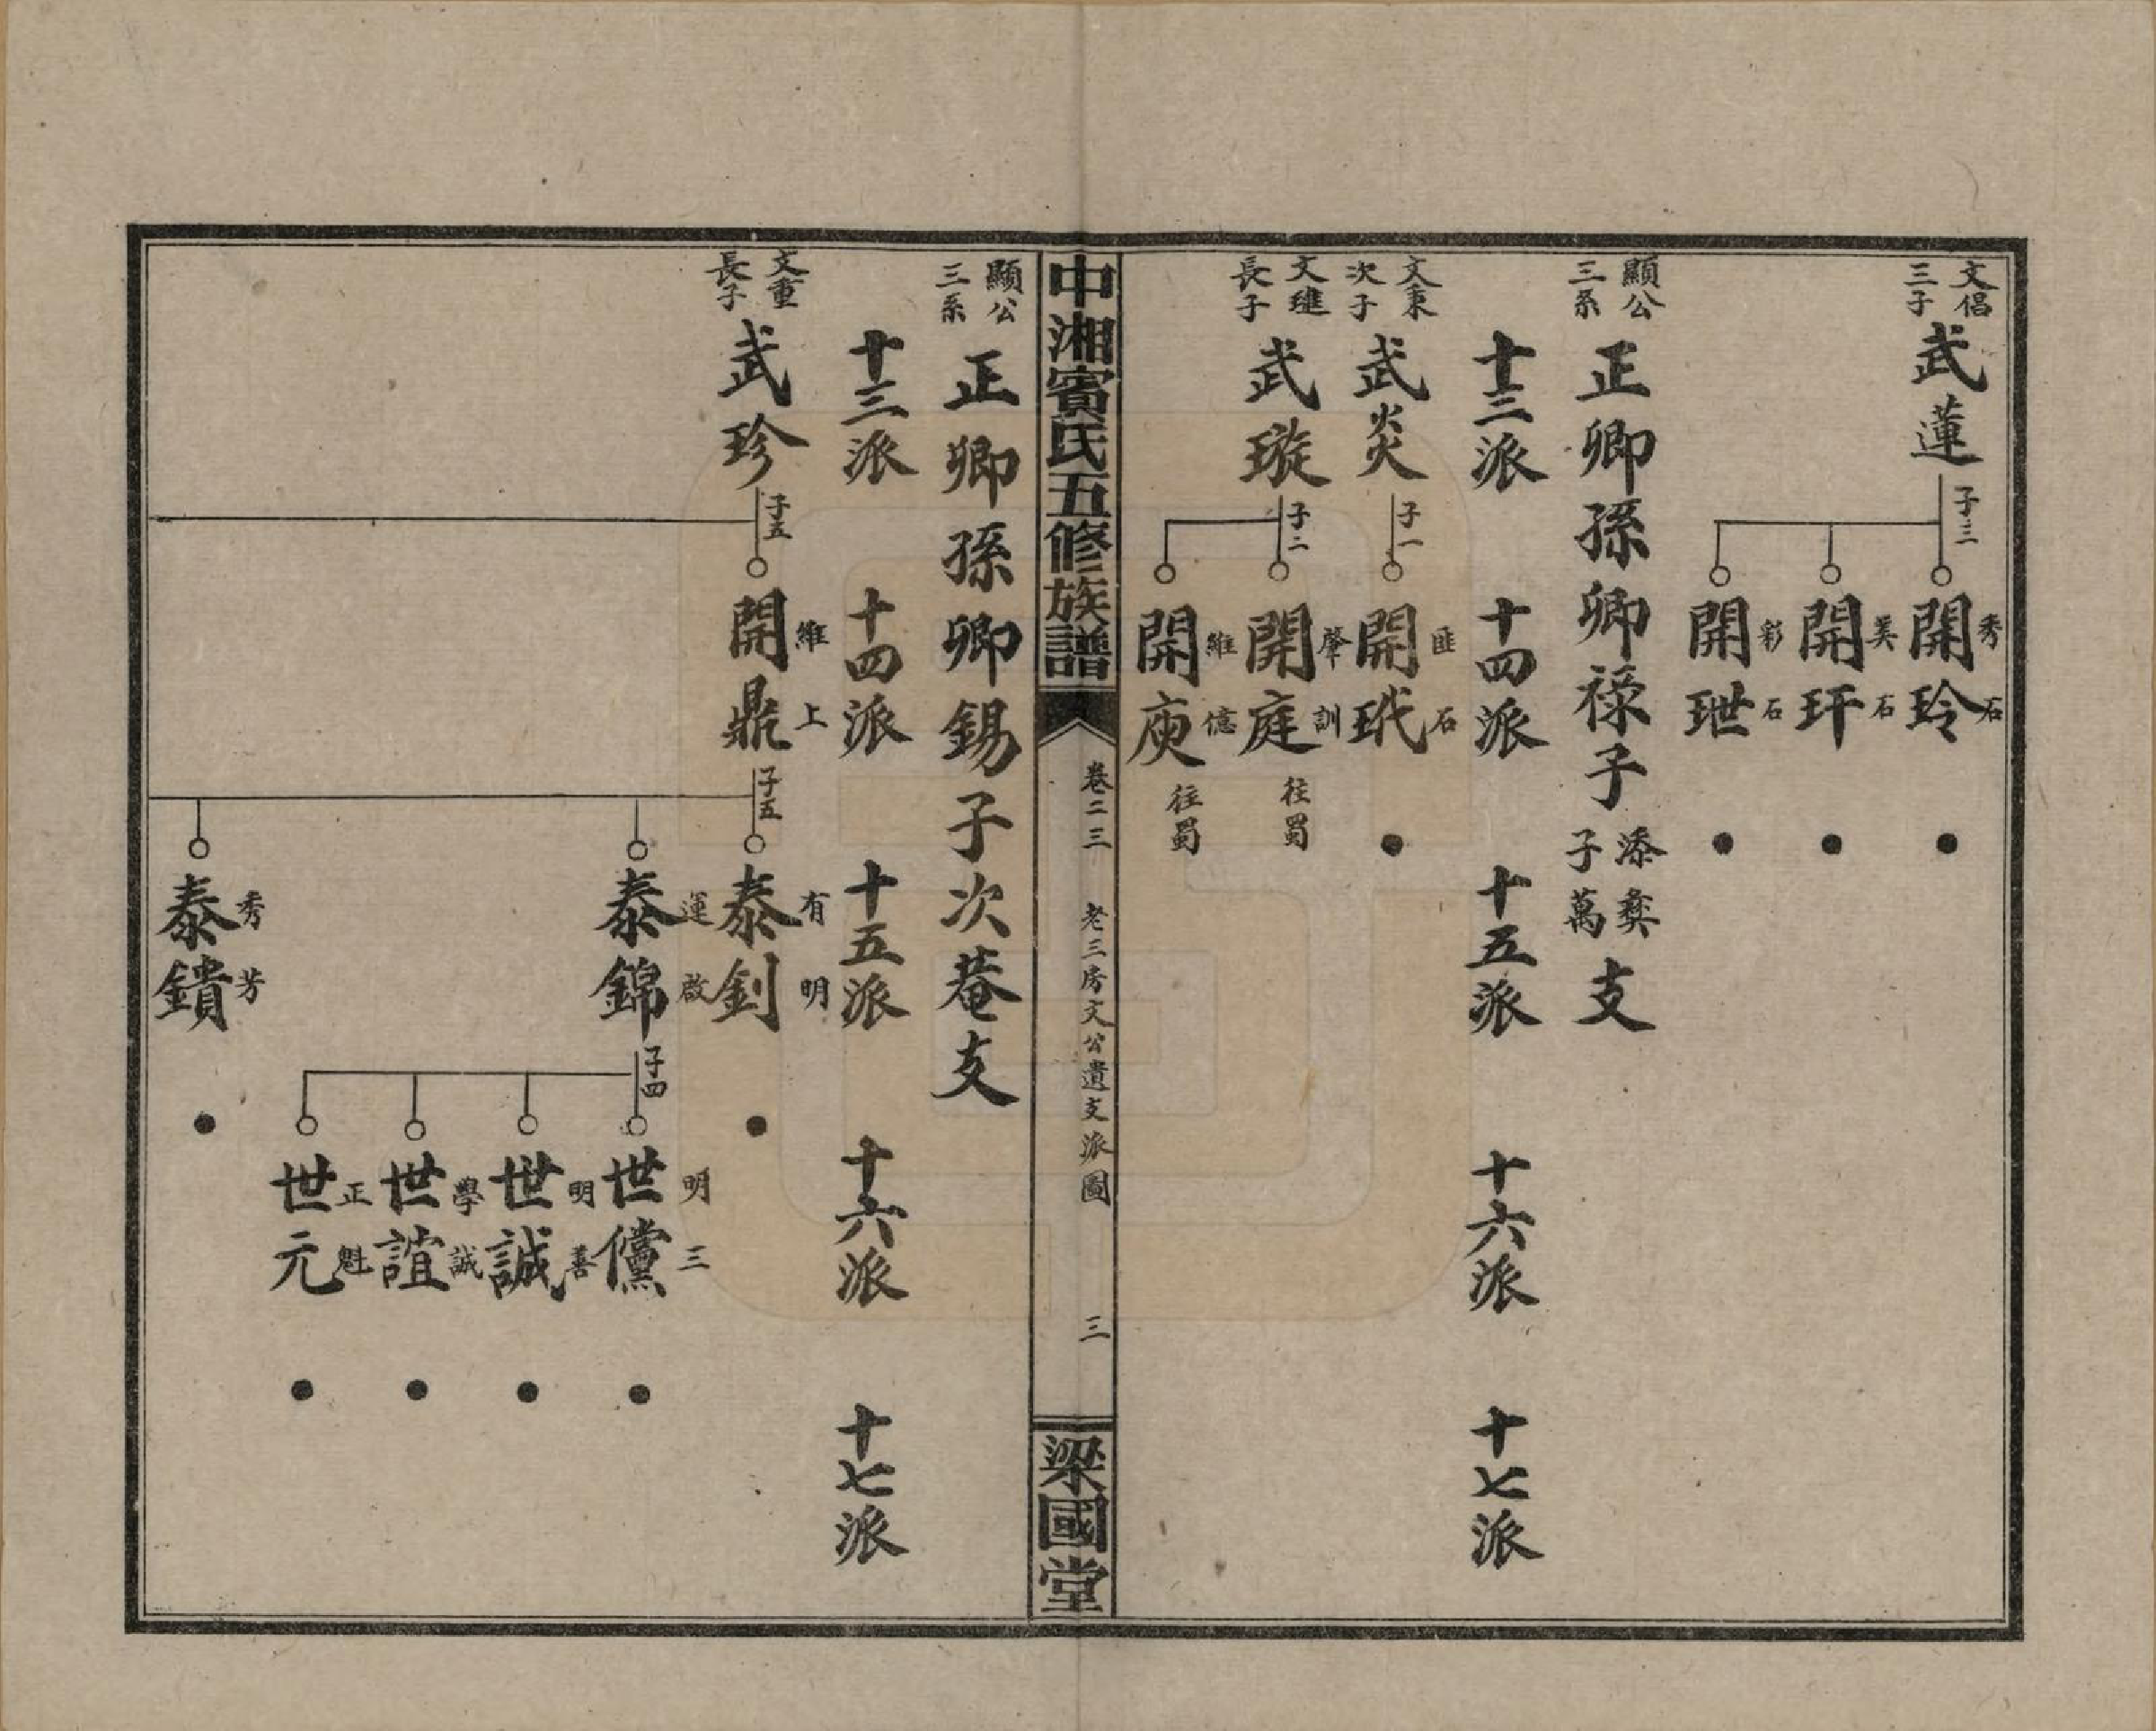 文倡
三子
武蓮
子三
開玲
秀石
開玕
美石
開玴
彩石
顯公
三系
正卿孫卿祿子
添彝
子萬
支
十三派
十四派
十五派
十六派
十七派
文秉
次子
武炎
子一
開玳
匪石
文璡
長子
武璇
子二
開庭
肇訓
往蜀
開庾
維億
往蜀
中湘賓氏五修族譜
卷二三
老三房文公遺支派圖
三
梁國堂
顯公
三系
正卿孫卿錫子次菴支
十三派
十四派
十五派
十六派
十七派
文重
長子
武珍
子五
開鼎
維上
子五
泰釗
有明
泰錦
運啟
子四
世儻
明三
世誠
明善
世誼
學誠
世元
正魁
泰鐀
秀芳